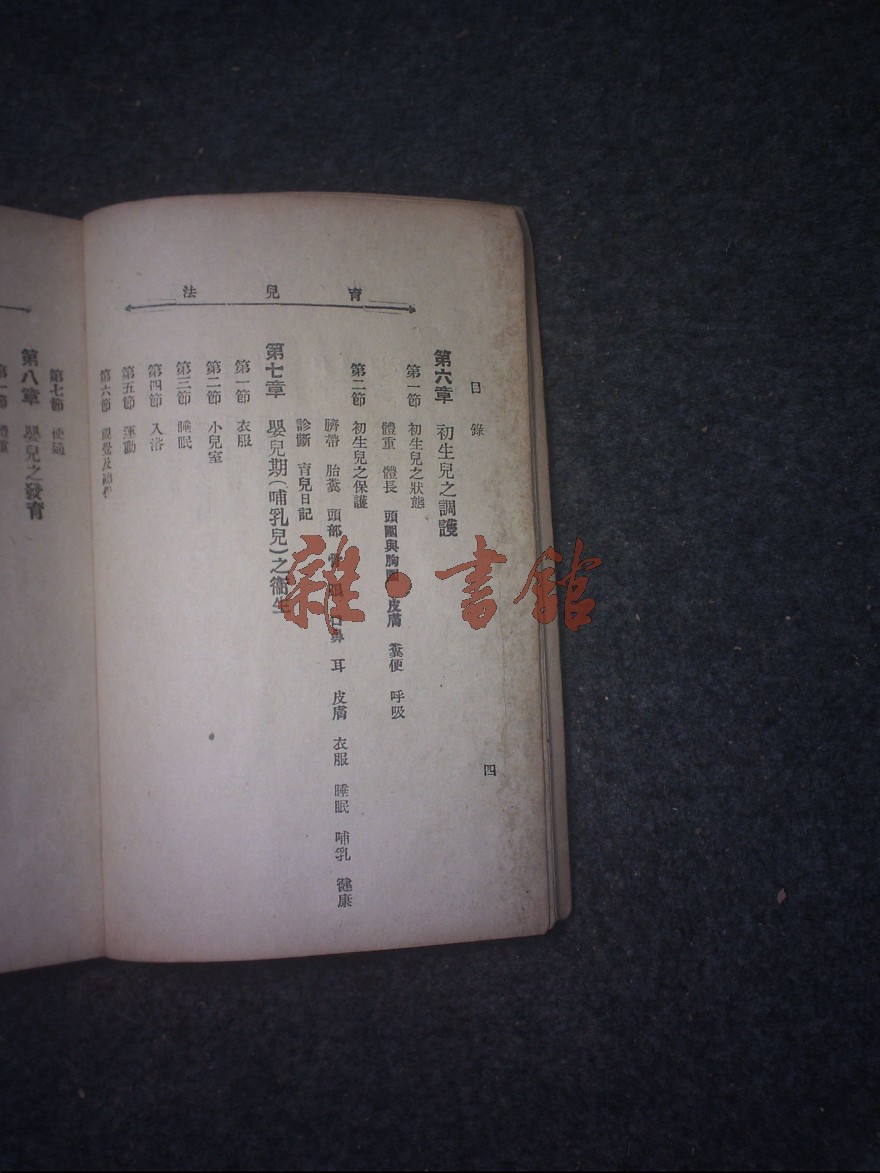 育兒法
目錄
四
第六章 初生兒之調護
第一節 初生兒之狀態
體重 體長 頭圍與胸圍 皮膚 糞便 呼吸
第二節 初生兒之保護
臍帶 胎糞 頭部 骨 眼 口鼻 耳 皮膚 衣服 睡眠 哺乳 健康
診斷 育兒日記
第七章 嬰兒期(哺乳兒)之衞生
第一節 衣服
第二節 小兒室
第三節 睡眠
第四節 入浴
第五節 運動
第六節
第七節 便通
第八章 嬰兒之發育
第一節 體重
雜·書館